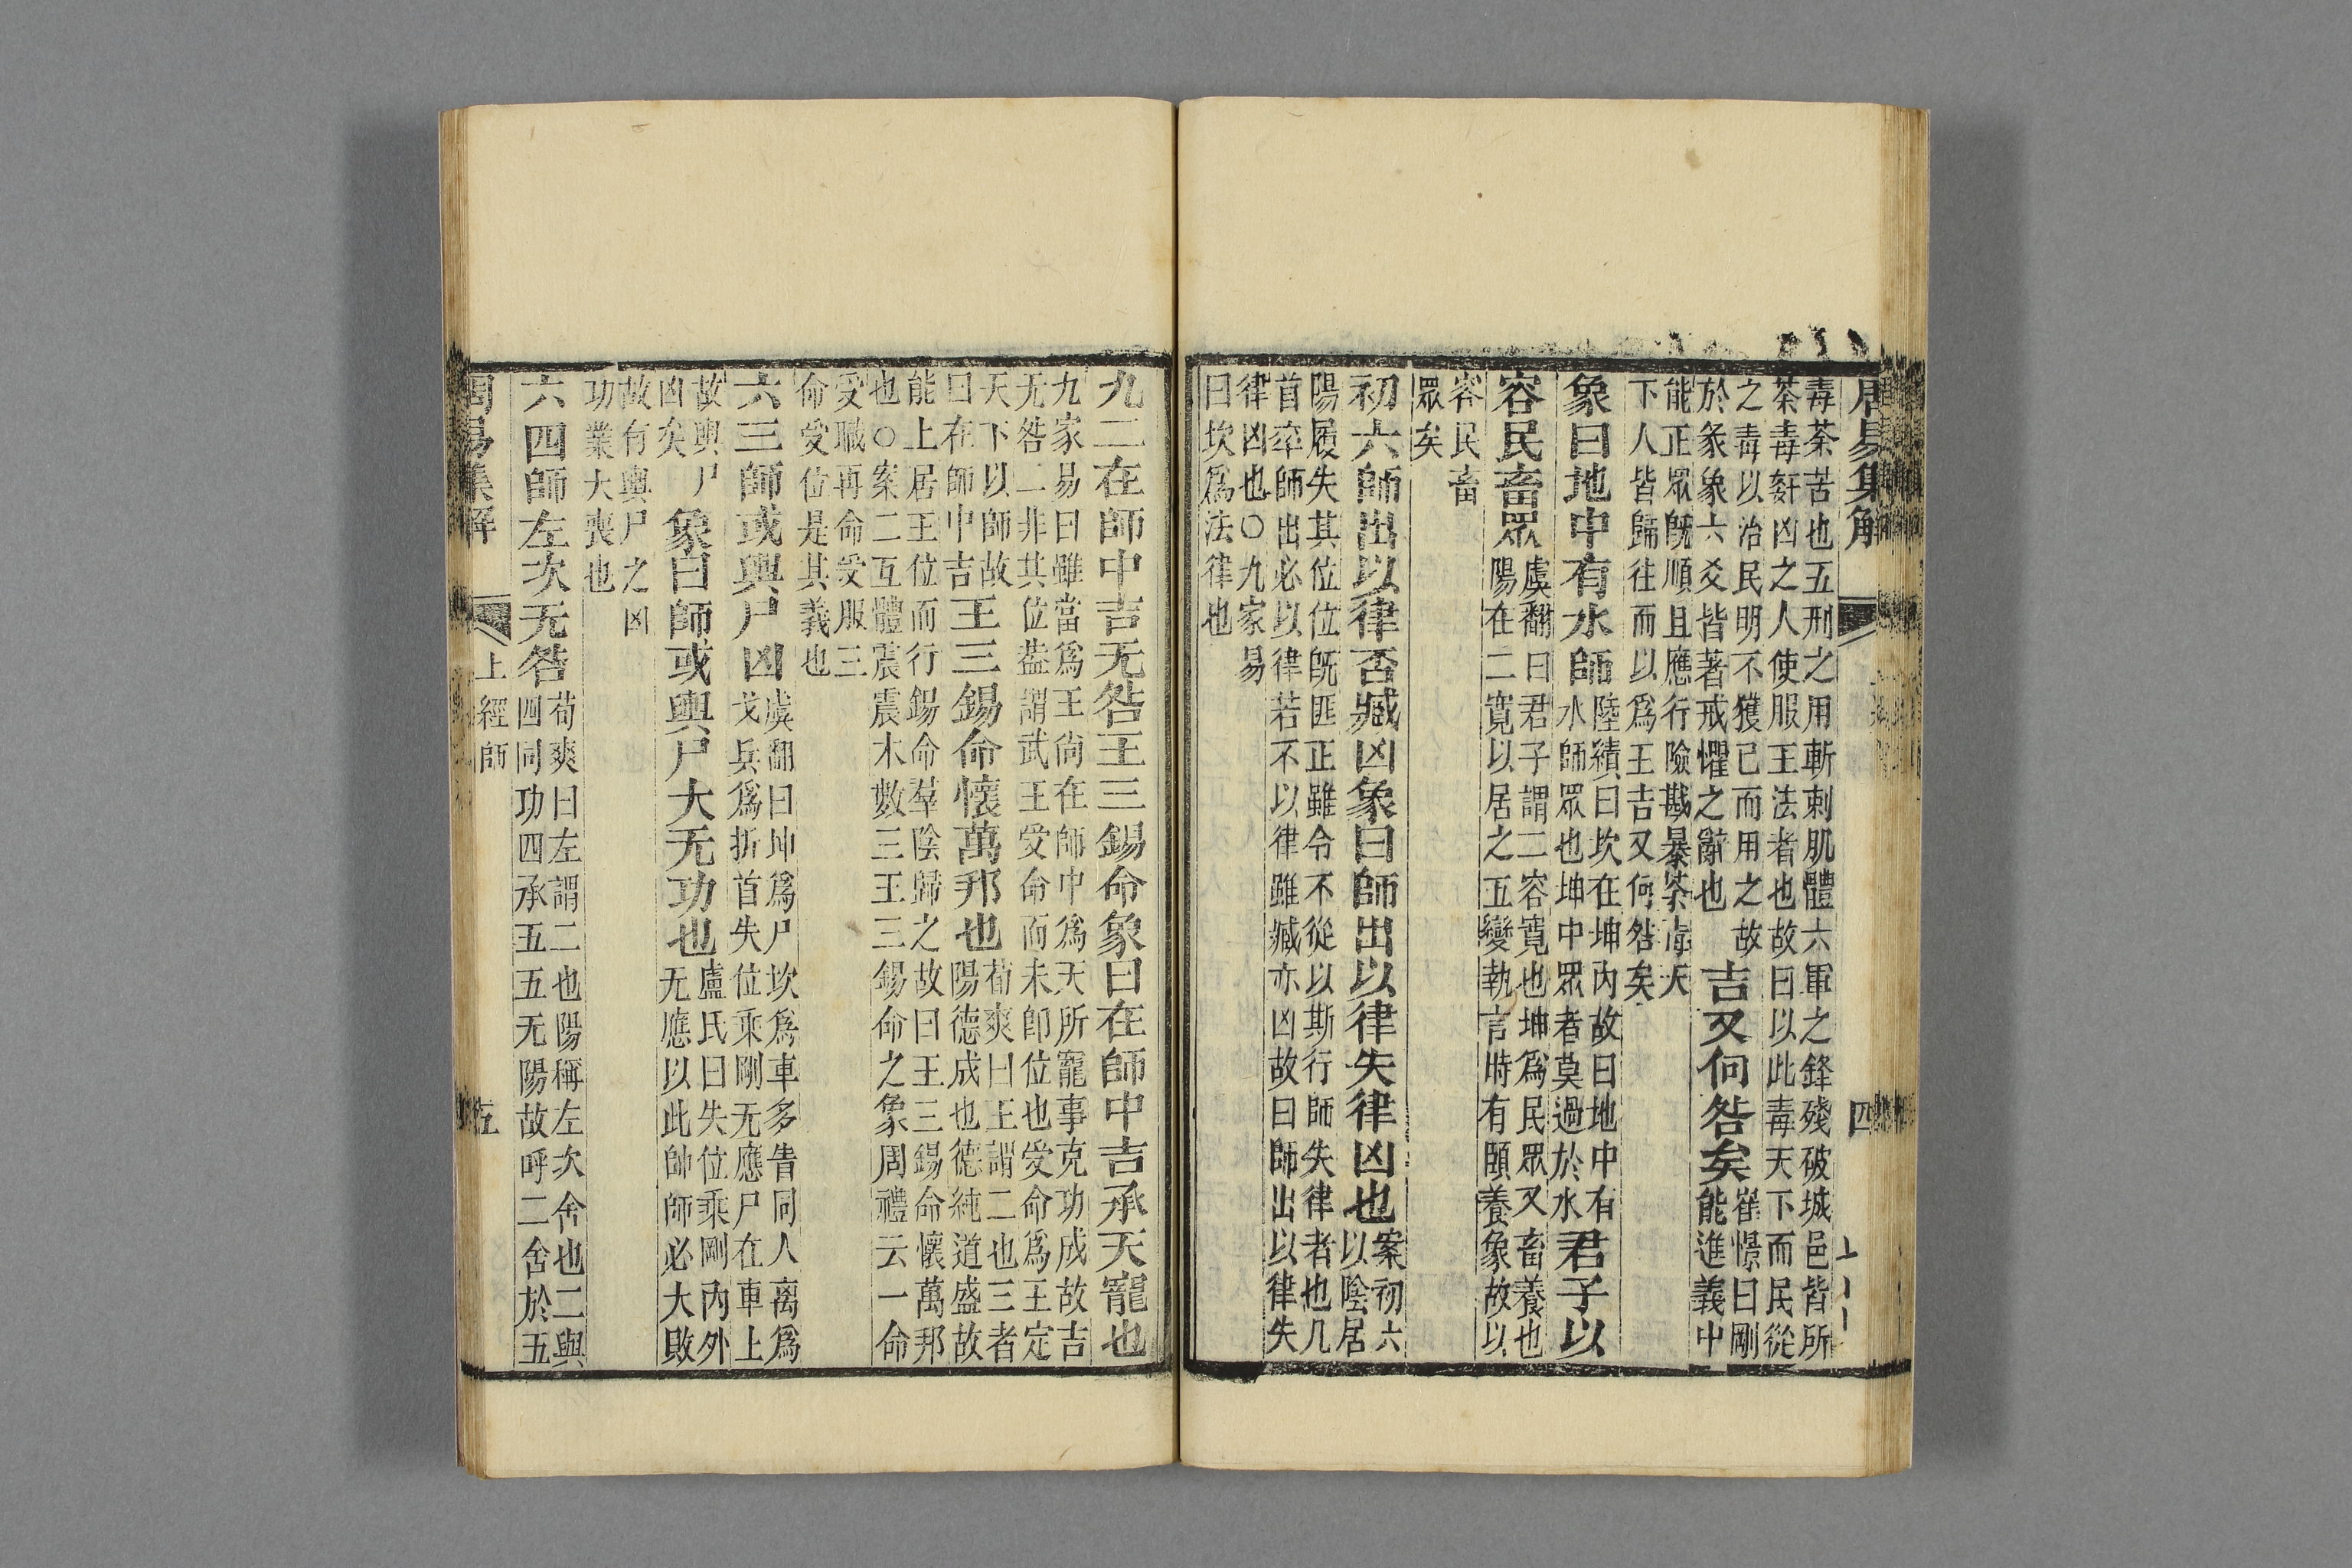 周易集解 四
毒荼苦也五刑之用斬刺肌體六軍之鋒殘破城邑皆所
荼毒姧凶之人使服王法者也故曰以此毒天下而民從
之毒以治民明不獲已而用之故
於彖象六爻皆著戒懼之辭也
吉又何咎矣
崔憬曰剛
能進義中
能正眾既順且應行險戡暴荼毒天
下人皆歸往而以爲王吉又何咎矣
象曰地中有水師
陸績曰坎在坤內故曰地中有
水師眾也坤中眾者莫過於水
君子以
容民畜眾
虞翻曰君子謂二容寬也坤爲民眾又畜養也
陽在二寬以居之五變執言時有頤養象故以
容民畜
眾矣
初六師出以律否臧凶象曰師出以律失律凶也
案初六
以陰居
陽履失其位位既匪正雖令不從以斯行師失律者也凡
首率師出必以律若不以律雖臧亦凶故曰師出以律失
律凶也○九家易
曰坎爲法律也
九二在師中吉无咎王三錫命象曰在師中吉承天寵也
九家易曰雖當爲王尙在師中爲天所寵事克功成故吉
无咎二非其位葢謂武王受命而未卽位也受命爲王定
天下以師故
曰在師中吉
王三錫命懷萬邦也
荀爽曰王謂二也三者
陽德成也德純道盛故
能上居王位而行錫命羣陰歸之故曰王三錫命懷萬邦
也○案二互體震震木數三王三錫命之象周禮云一命
受職再命受服三
命受位是其義也
六三師或輿尸凶
虞翻曰坤爲尸坎爲車多眚同人离爲
戈兵爲折首失位乘剛无應尸在車上
故輿尸
凶矣
象曰師或輿尸大无功也
盧氏曰失位乘剛內外
无應以此帥師必大敗
故有輿尸之凶
功業大喪也
六四師左次无咎
荀爽曰左謂二也陽稱左次舍也二與
四同功四承五五无陽故呼二舍於五
周易集解 上經師 五